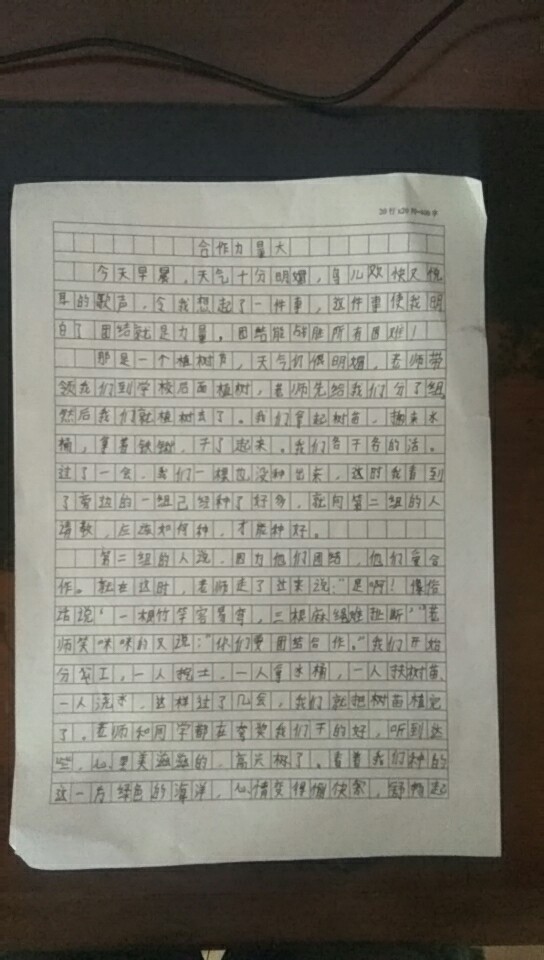 20行×20列=400字
合作力量大
今天早晨，天气十分明媚，鸟儿欢快又悦
耳的歌声，令我想起了一件事，这件事使我明
白了团结就是力量。团结能战胜所有困难！
那是一个植树节，天气们偶明媚，老师带
领我们到学校后面植树，老师先给我们分了组，
然后我们就植树去了。我们拿起树苗，水
桶，拿着铁锹，干了起来。我们各干各的活。
过了一会，我们一棵也没种出来，这时我看到
了旁边的一组已经种了好多，就向第二组的人
请教，应该如何种，才能种好。
第二组的人说，因为他们团结，他们会合
作。就在这时，老师走了过来说：“是啊！俗
话说‘一根竹竿容易弯，三根麻绳难扯断’”老
师笑咪咪的又说：“你们要团结合作。”我们开始
分工，一人挖土，一人拿水桶，一人扶树苗，
一人浇水，这样过了几会，我们就把树苗植完
了。老师和同学都在夸奖我们干的好，听到这
些，心里美滋滋的，高兴树了。看着我们种的
这一片绿色的海洋，心情变得愉快，起